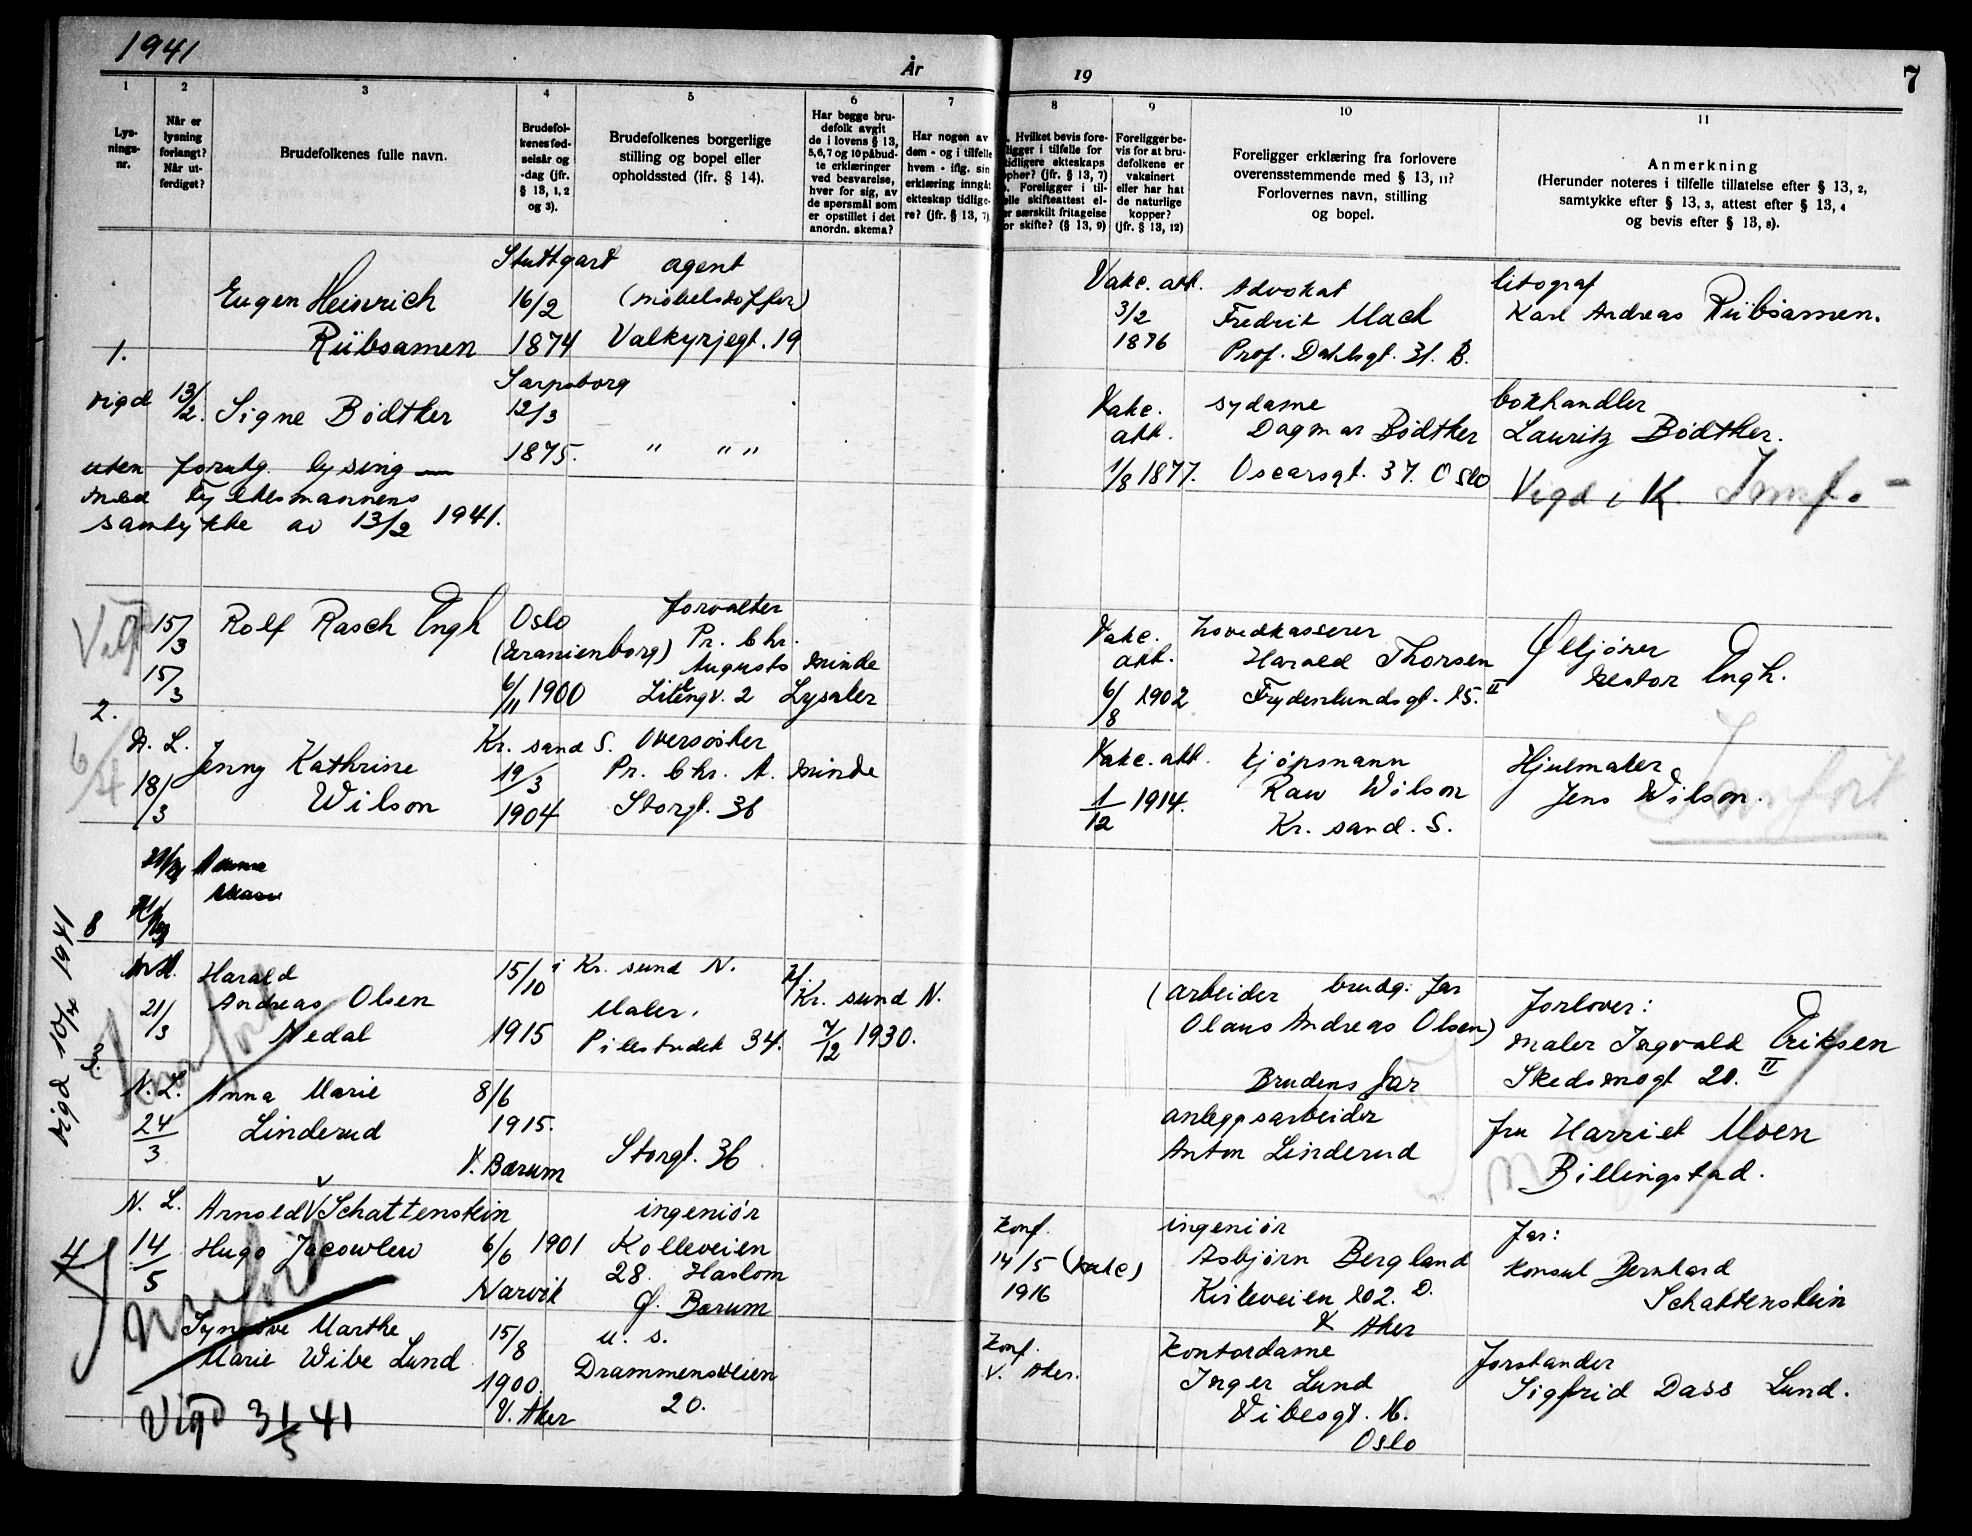 1941
År
19
7
1
2
3
4
5
6
7
8
9
10
11
Lys-
nings-
nr.
Når er
lysning
forlangt?
Når ut-
ferdiget?
Brudefolkenes fulle navn.
Brudefol-
kenes fød-
selsår og
-dag (jfr.
§ 13, 1, 2
og 3).
Brudefolkenes borgerlige
stilling og bopel eller
opholdssted (jfr. § 14).
Har begge bru-
defolk avgit
de i lovens § 13,
5,6,7 og 10 påbud-
te erklæringer
ved besvarelse,
hver for sig, av
de spørsmål som
er opstillet i det
anordn. skema?
Har nogen av
dem - og i tilfelle
hvem - iflg. sin
erklæring inngåt
ekteskap tidlige-
re? (jfr. § 13, 7)
Hvilket bevis fore-
ligger i tilfelle for
tidligere ekteskaps
ophør? (jfr. § 13, 7)
Foreligger i til-
elle skifteattest el-
er særskilt fritagelse
or skifte? (§ 13, 9)
Foreligger be-
vis for at bru-
defolkene er
vaksinert
eller har hat
de naturlige
kopper?
(jfr. § 13, 12)
Foreligger erklæring fra forlovere
overensstemmende med § 13, 11?
Forlovernes navn, stilling
og bopel.
Anmerkning
(Herunder noteres i tilfelle tillatelse efter § 13, 2,
samtykke efter § 13, 3, attest efter § 13, 4
og bevis efter § 13, 8).
1.
Eugen Heinrich
Rübsamen
Stuttgart
16/2
1874
agent
(møbelstoffer)
Valkyrjegt. 19
Vakc. att.
3/2
1876
Advokat
Fredrik Mack
Prof. Dahlsgt. 31. B.
litograf
Karl Andreas Rübsamen.
vigd 13/2.
Signe Bødtker
Sarpsborg
12/3
1875.
" " "
Vakc.
att.
1/8 1877.
sydame
Dagmar Bødtker
Oscarsgt. 37. Oslo
bokhandler
Lauritz Bødtker.
Vigd i K. Jmf.
uten forutg. lysing
med fylkesmannens
samtykke av 13/2 1941.
2.
15/3
15/3
Rolf Rasch Engh
Oslo
(Uranienborg)
6/11 1900
forvalter
Pr. Chr.
Augusts Minde
Lilleengv. 2 Lysaker
Vakc.
att.
6/8 1902
hovedkasserer
Harald Thorsen
Frydenlundsgt. 15. II
Nestor Engh.
6/4
N. L.
18/3
Jenny Kathrine
Wilson
Kr. sand S.
19/3
1904
Oversøster
Pr. Chr. A. Minde
Storgt. 36
Vakc. att.
1/12 1914.
kjøpmann
Rau Wilson
Kr. sand. S.
Hjulmaker
Jens Wilson.
Jmfört
8
3.
Vigd 10/4 1941
21/3
Harald
Andreas Olsen
Nedal
15/10
1915
i Kr. sund N.
Maler,
Pilestredet 34.
Kr. sund N.
7/12 1930.
(arbeider brudg. far
Olaus Andreas Olsen)
Forlover:
maler Ingvald Eriksen
Skedsmogt 20. II
N. L.
24/3
Anna Marie
Linderud
8/6
1915.
V. Bærum
Storgt. 36
Brudens far
anleggsarbeider
Anton Linderud
fru Harriet Moen
Billingstad.
4
N. L.
14/5
Arnold Schattenstein
Hugo Jacowlew
6/6 1901
Narvik
ingeniør
Kolleveien
28. Haslom
Ø. Bærum
Konf.
14/5 (vakc)
1916
ingeniør
Asbjørn Bergland
Kirkeveien 102. D.
V. Aker
Far:
Konsul Bernhard
Schattenstein
Synnøve Marthe
Marie Wibe Lund
15/8
1900.
V. Aker
u. s.
Drammensveien
20.
Konf.
V. Aker.
Kontordame
Inger Lund
Vibesgt. 16.
Oslo
Forstander
Sigfrid Dass Lund.
Vigd 31/5 41